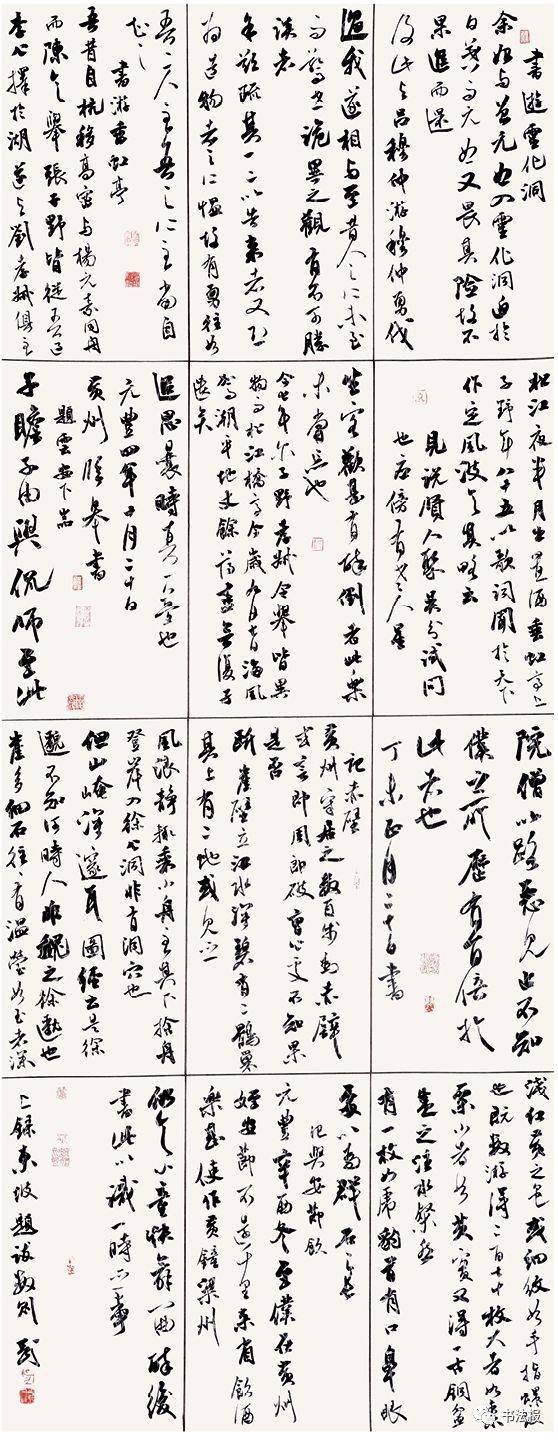 書遊靈化洞
余始與曾元恕入靈化洞迫於
日暮而元恕又畏其險故不
果進而還
後此與呂穆仲游穆仲勇伐
過我遂相與至昔人之所未至
而驚世詭異之觀有不可勝
談者
余欲疏其一二以告來者又恐
為造物者之所慍故有勇往如
吾二人至吾之所至當自
知之
書游垂虹亭
吾昔自杭移高密與楊元素同舟
而陳令舉張子野皆從吾過
李公擇於湖遂與劉孝叔俱至
松江夜半月出置酒垂虹亭上
子野年八十五以歌詞聞於天下
作定風波令其略云
見說賢人聚吳分試問
也應傍有老人星
坐客歡甚有醉倒者此樂
未嘗忘也
今七年爾子野孝叔令舉皆異
物而松江橋亭今歲九月七日海風
駕潮平地丈餘蕩盡無復孑
遺矣
追思曩時真一夢也
元豐四年十月二十日
黃州臨皋書
題雲安下巖
子瞻子由與侃師至此
院僧以路惡見止不知
僕之所歷有百倍於
此者也
丁未正月二十日書
記赤壁
黃州守居之數百步為赤壁
或言即周郎破曹公處不知果
是否
斷崖壁立江水深碧有二鶻巢
其上有二蛇或見之
風浪靜輒乘小舟至其下捨舟
登岸入徐公洞非有洞穴也
但山崦深邃耳圖經云是徐
邈不知何時人非魏之徐邈也
崖多細石往往有溫瑩如玉者深
淺紅黃之色或細紋如手指螺紋
也既數游得二百七十枚大者如棗
栗小者如芡實又得一古銅盆
盛之注水粲然
有一枚如虎豹首有口鼻眼
處以為群石之長
記與安節飲
元豐辛酉冬至僕在黃州
姪安節不遠千里來省飲酒
樂甚使作黃鍾梁州
仍令小童快舞一曲醉後
書此以識一時之事
上錄東坡題跋數則
书法报